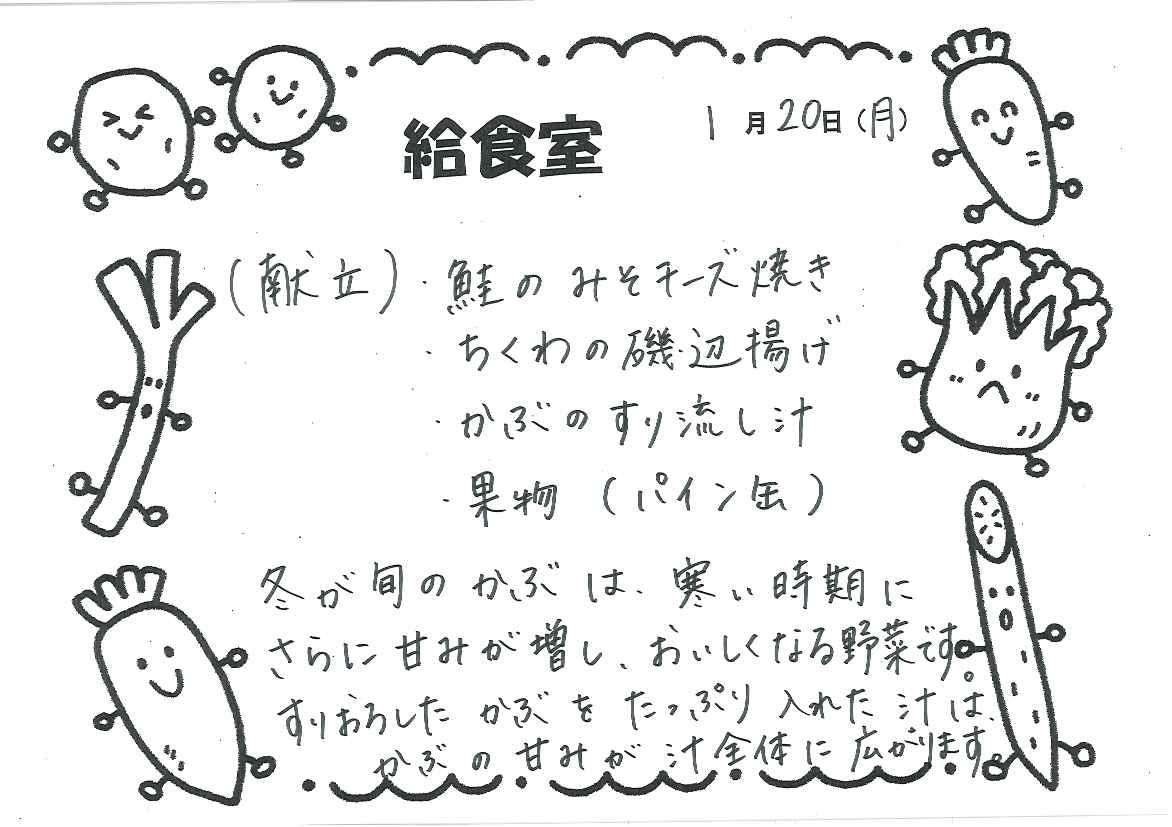 給食室
1月20日(月)
(献立)・鮭のみそチーズ焼き
・ちくわの磯辺揚げ
・かぶのすり流し汁
・果物(パイン缶)
冬が旬のかぶは、寒い時期に
さらに甘みが増し、おいしくなる野菜です。
すりおろしたかぶをたっぷり入れた汁は、
かぶの甘みが汁全体に広がります。